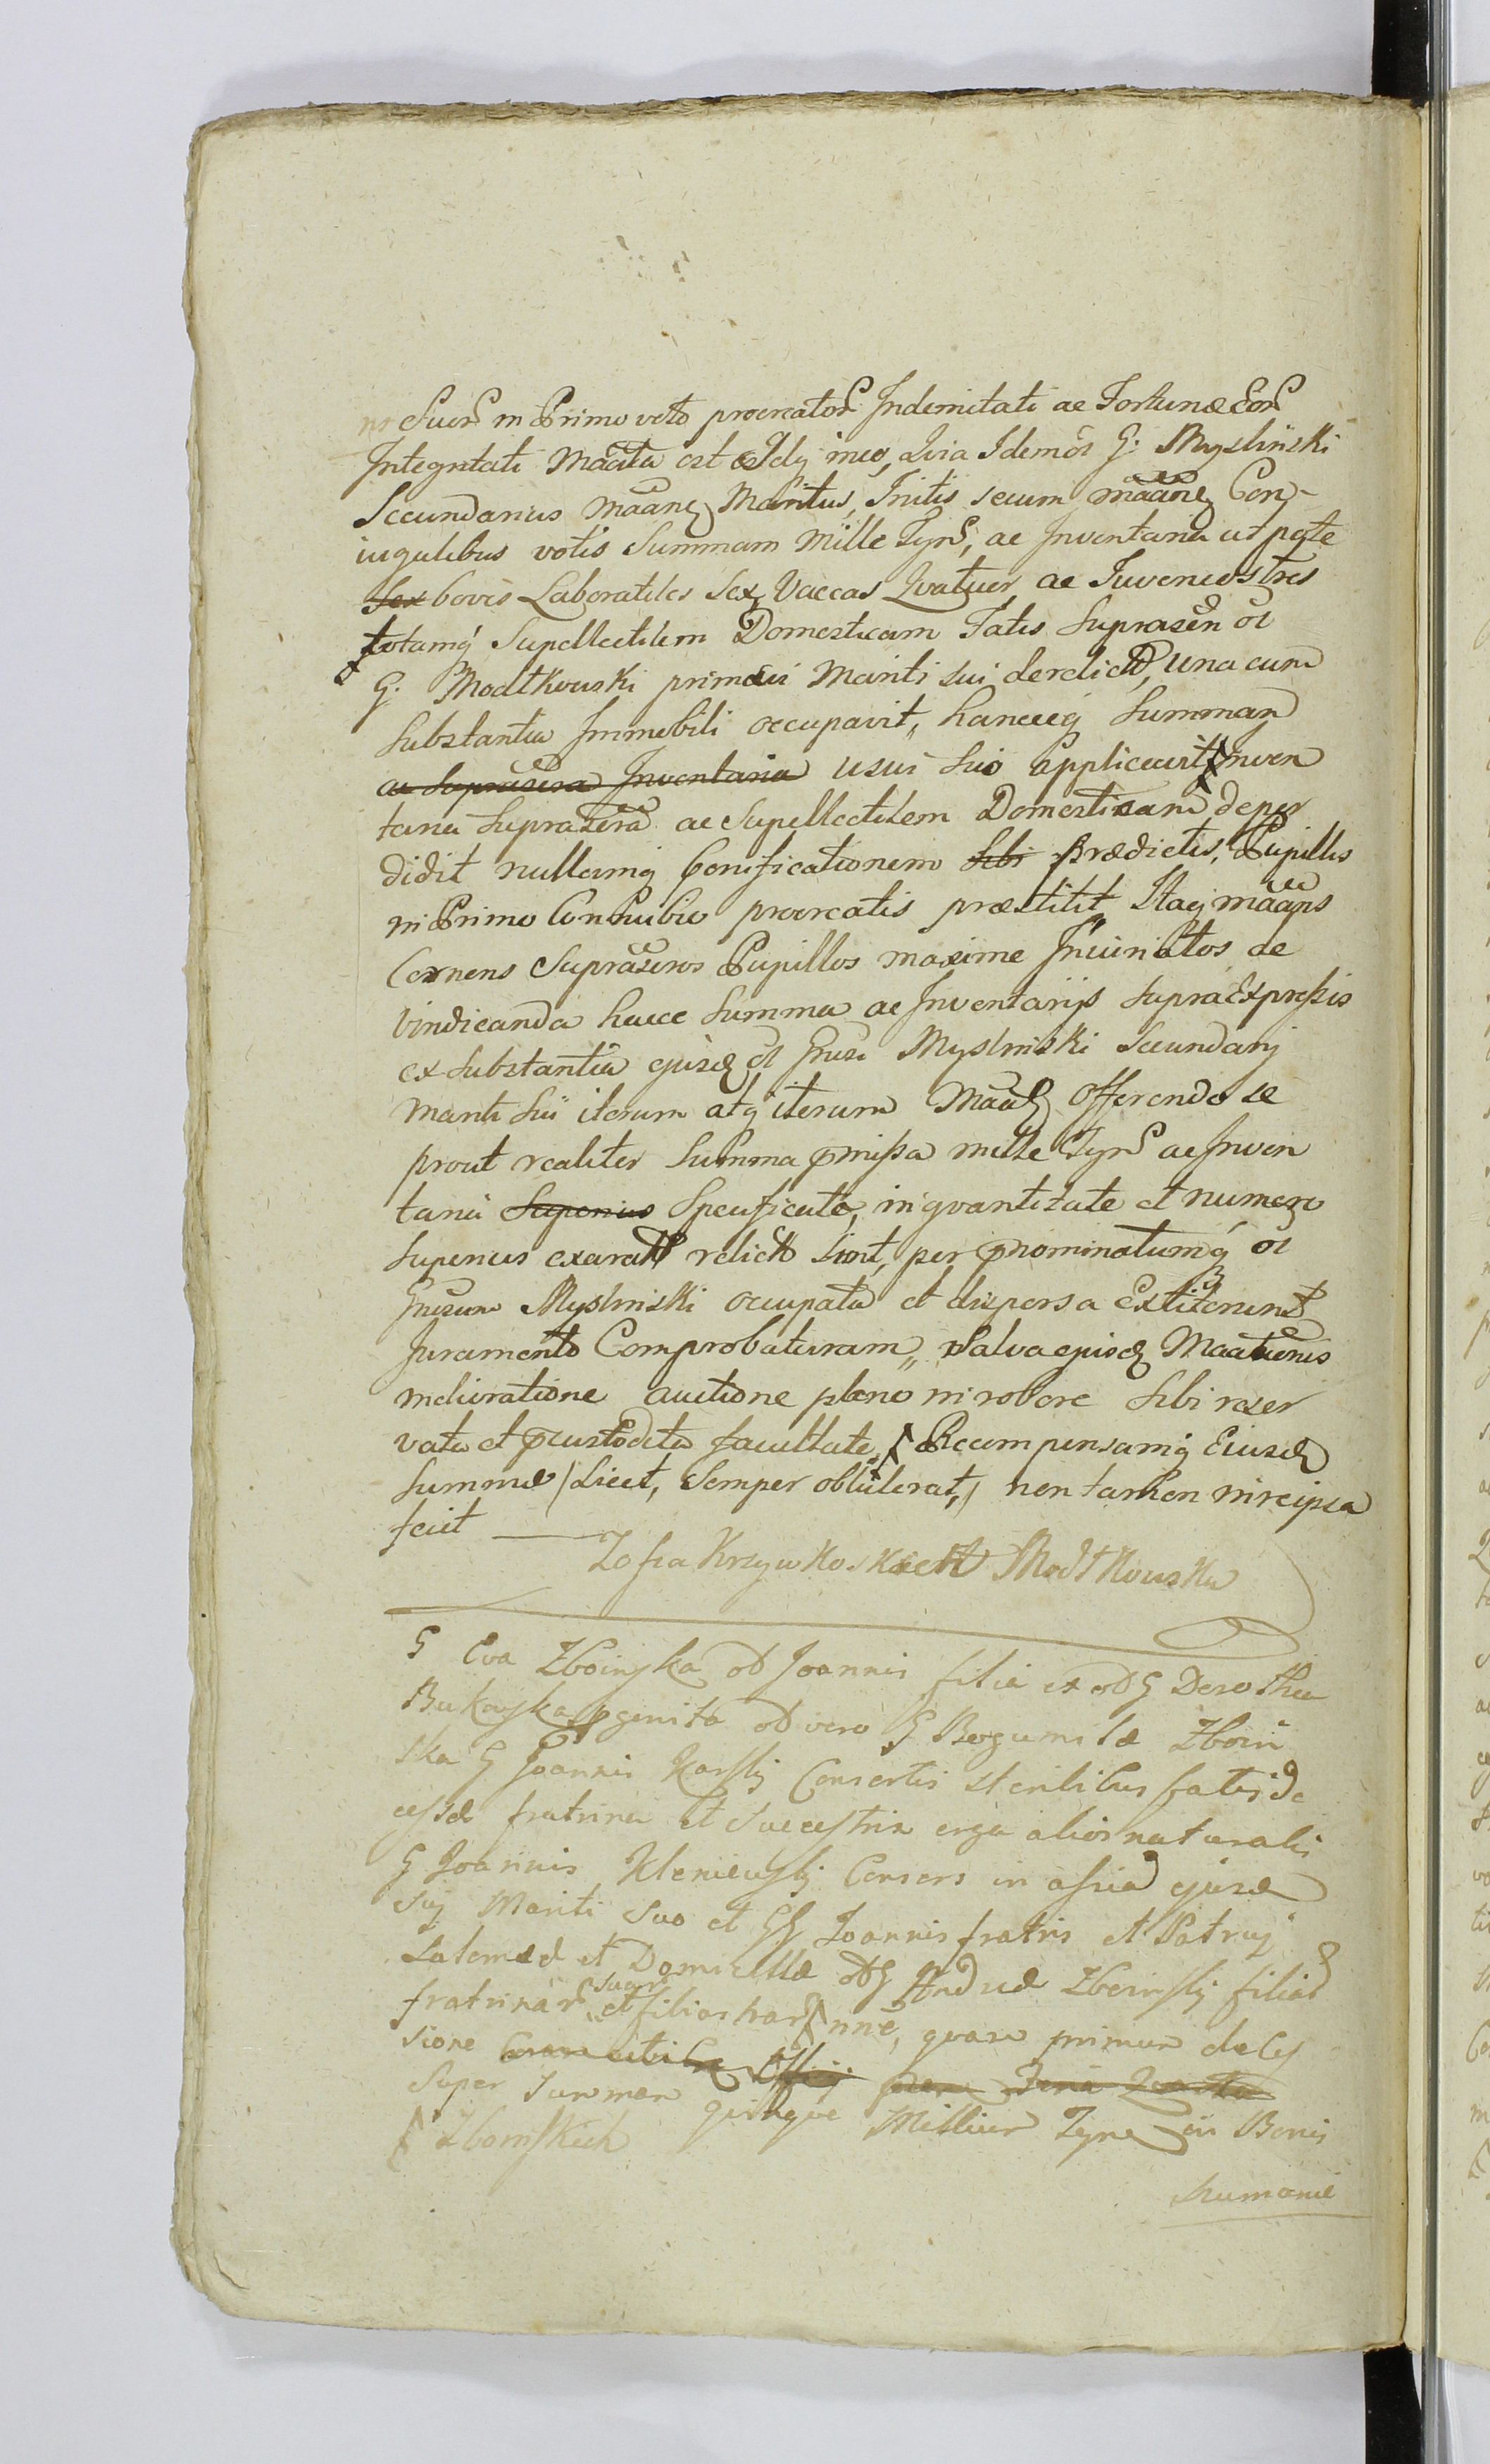 no Suor in Primo voto procreator Indemitati ac Fortunæ Eor
Integritati Maata est Idq ineo, Qvia Idem ol G. Mysliński
Secundarius Maanq Maritus, Initis secum Maanq Con-
iugalibus votis Summam Mille Tynf, ac Inventaria ut pote
Sex boves Laboratiles Sex Vaccas Qvatuor ac Iuvencos Tres
totamq Supellectilem Domesticam Fatis Suprasen ol
G. Modtkowski primævi Mariti sui derelict, una cum
Substantia Immobili occupavit, hancceq Summan
ac Suprasera Inventaria usui suo applicavit Inven
taria Suprasera ac Supellectilem Domesticam deper
didit nullamq Bonificationem Sibi Prædictis, Pupillis
in Primo Connubio procreatis præstitit Itaq Maans
Cernens Supraseros Pupillos maxime Iniuriatos de
vindicanda hacce Summa ac Inventarijs supra Expressis
ex Substantia ejusd ol Gnusi Mysliński Secundarij
Mariti Sui iterum atq iterum Maatq Offerendo se
prout realiter Summa pmissa mille Tynf ac Inven
taria Superius Specificata, in qvantitate et numero
superius exarat relict sint, per pnominatumq ol
Gnusum Mysliński occupata et dispersa Extiterunt
Juramento Comprobaturam, Salva ejusd Maationis
melioratione auctione plene in robore sibi reser
vata et pcustodita facultate, Recompensamq Eiusd
Summæ / Licet, Semper obtulerat, / non tamen in reipsa
fecit
Zofia Krzywkoskich Modtkowska
G Eva Zboinska ol Joannis filia ex ol G Dorothea
Bukowska pgenita ol vero G Bogumilæ Zboin
ska G Joannis Karski Consortis sterilibus fatis de
cessæ fratrina et Succestrix erga alios naturalis
G Joannis Kleniewski Consors in assia ejusd
sui Mariti suo et GG Joannis fratris et Patrui
Salomeæ et Domicellæ ol G Andreæ Zboinski filiar
fratrinar suar et filiastrar nne, quare primum de Ces
sione Officij
Super Summam quinque Millium Tynf in Bonis
Zboinskich
Rumunie